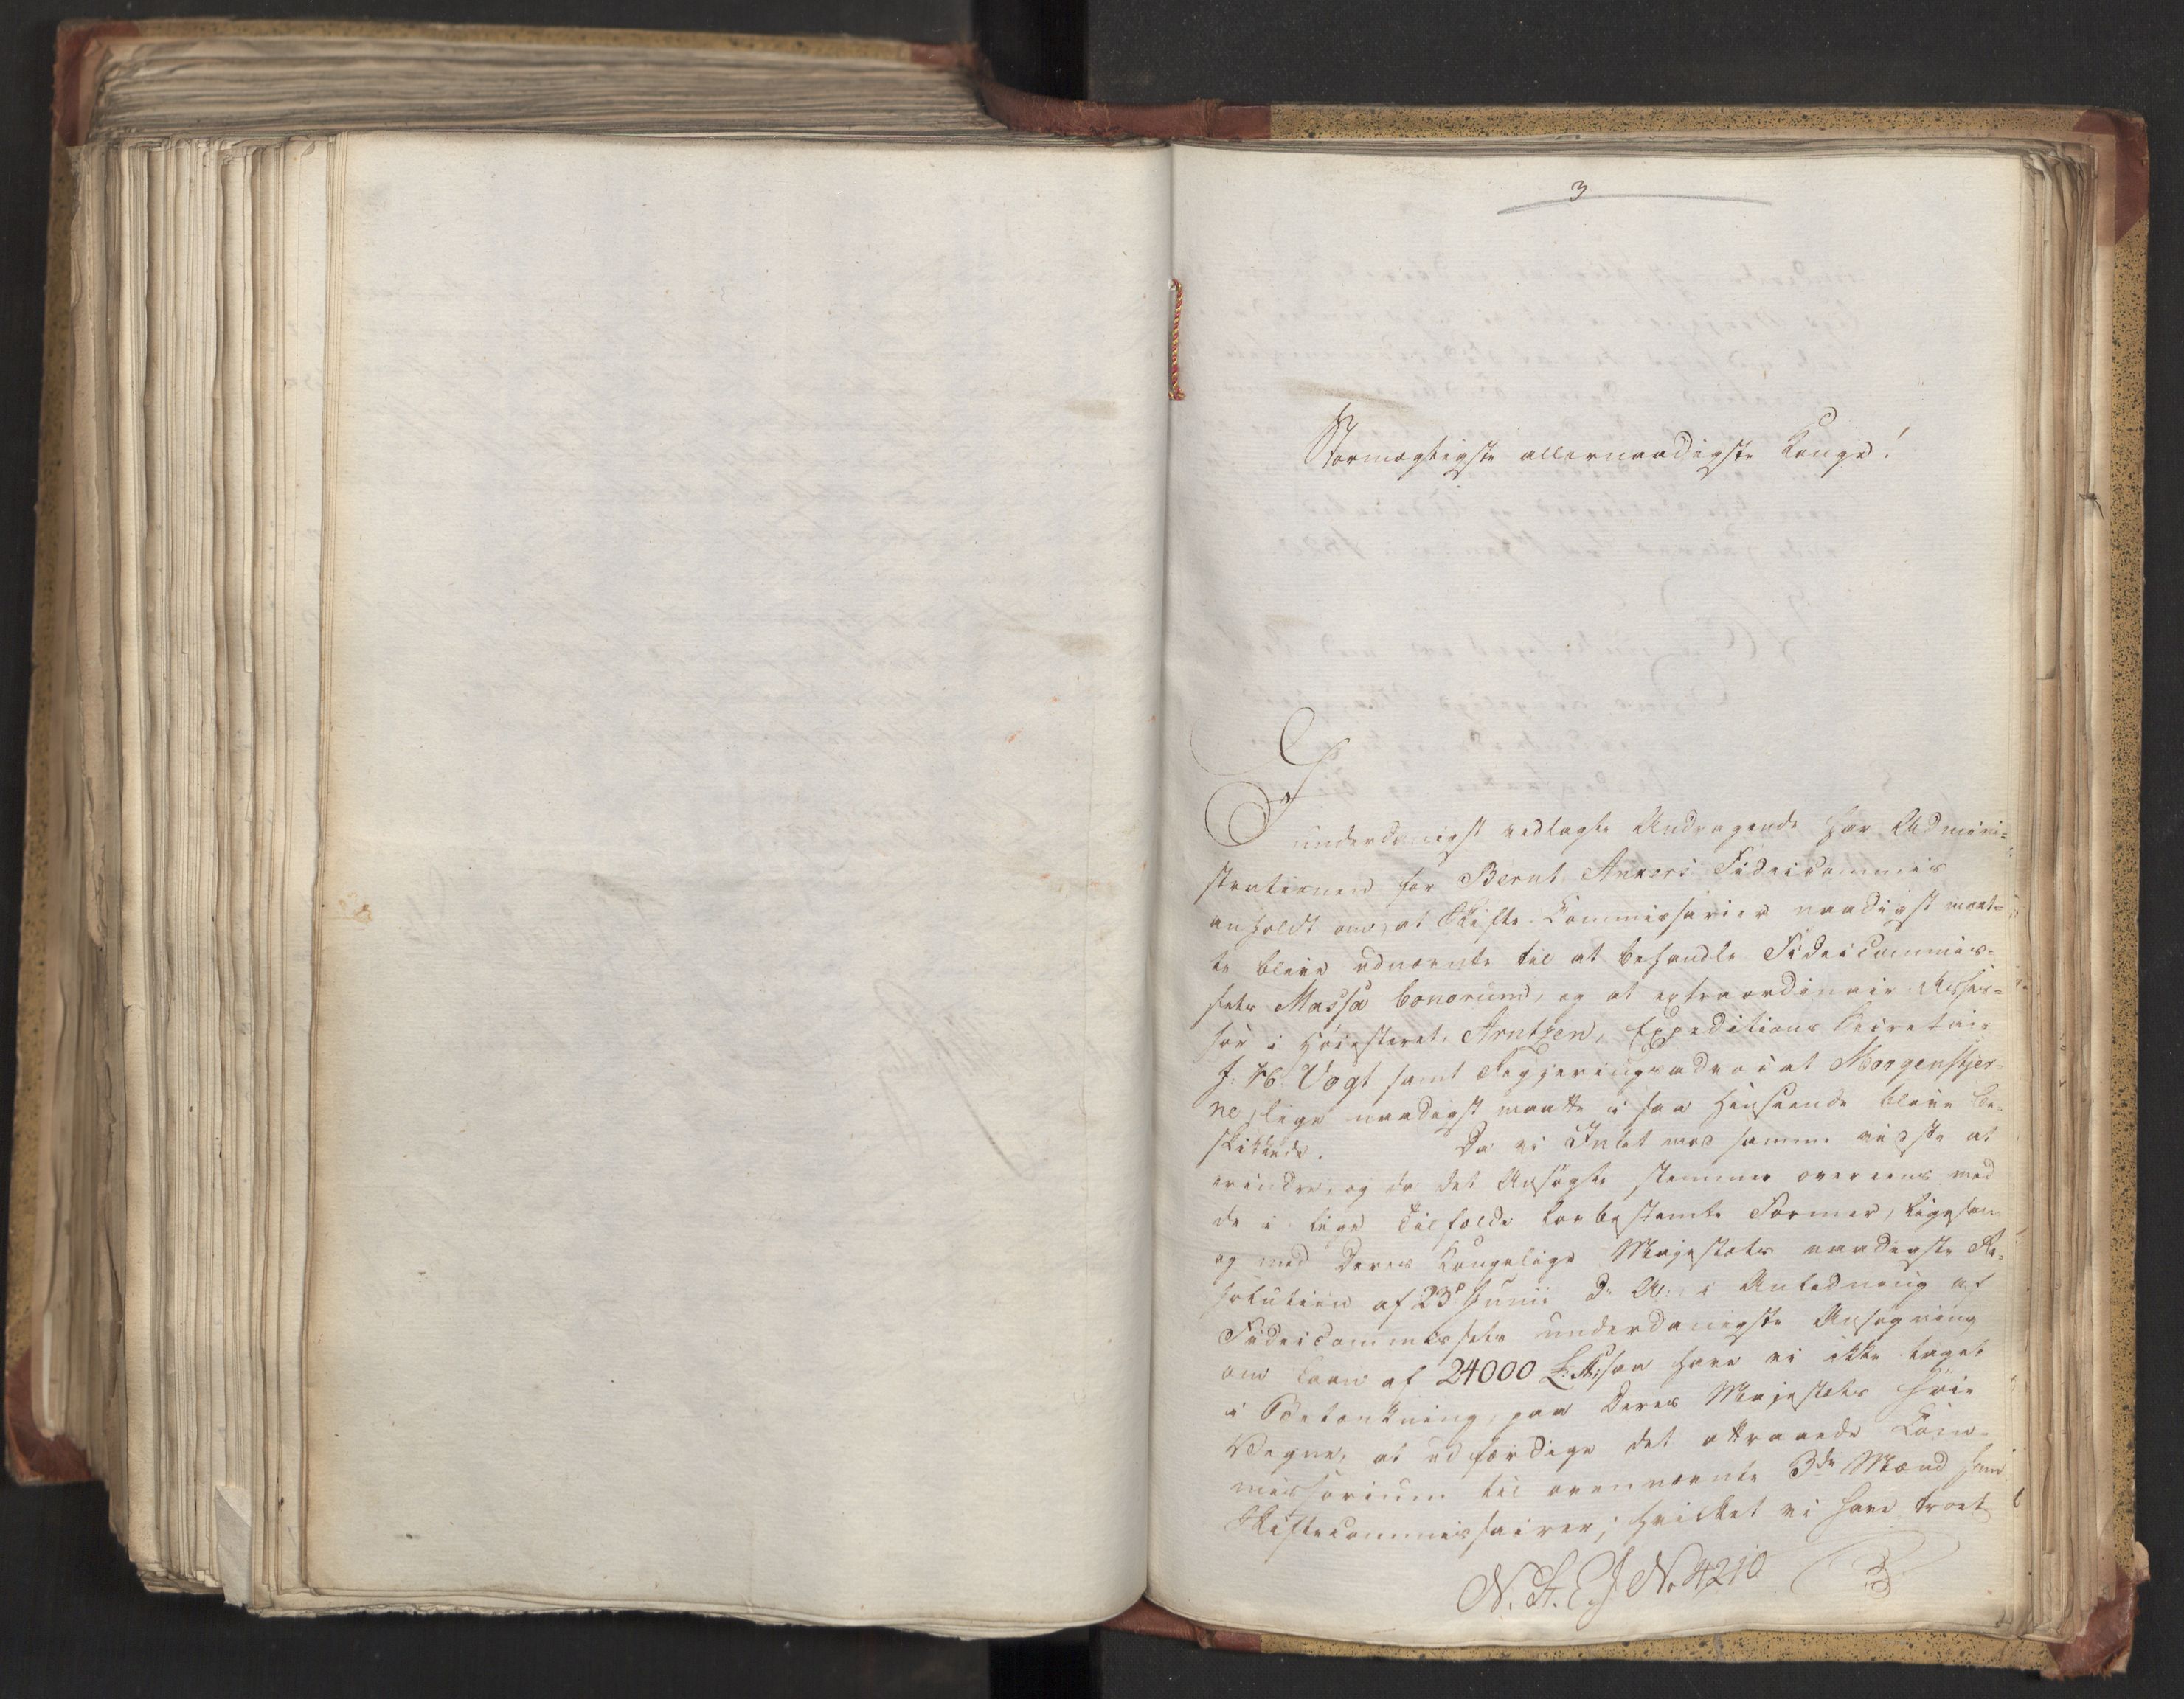 3
Stormægtigste allernaadigste Konge!
I
underdanigst vedlagte Andragende har Admini-
strationen for Bernt Ankers Fideicommis
anholdt om, at Skifte-Commissarier naadigst maat-
te blive udnævnte til at behandle Fideicommis-
sets Massa bonorum, og at extraordinair Asses-
sor i Høiesteret, Arntzen, Expeditions Secretair
J: H: Vogt samt Regjeringsadvocat Morgenstjer-
ne, lige naadigst maatte i saa Henseende blive be-
skikkede. Da vi Intet mod samme vidste at
erindre, og da det Ansøgte stemmer overeens med
de i lige Tilfælde lovbestemte Former, ligesom
og med Deres Kongelige Majestæts naadigste Re-
solution af 23de Junii d: A: i Anledning af
Fideicommissets underdanigste Ansøgning
om Laan af 24000 L: St: saa have vi ikke taget
i Betænkning, paa Deres Majestæts høie
Vegne, at udfærdige det attraaede Com-
missorium til ovennævnte 3de Mænd som
Skiftecommissairer; hvilket vi have troet
N. St. E. J. No 4210